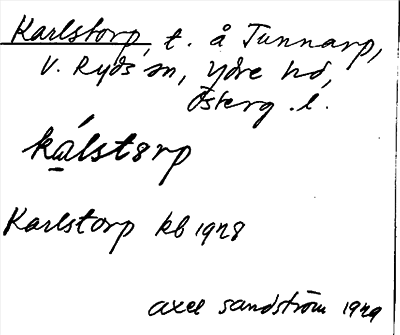 Karlstorp, t. å Tunnarp,
V. Ryds sn, Ydre hd,
Österg. l.
kálstərp
Karlstorp kb 1928
Axel Sandström 1929